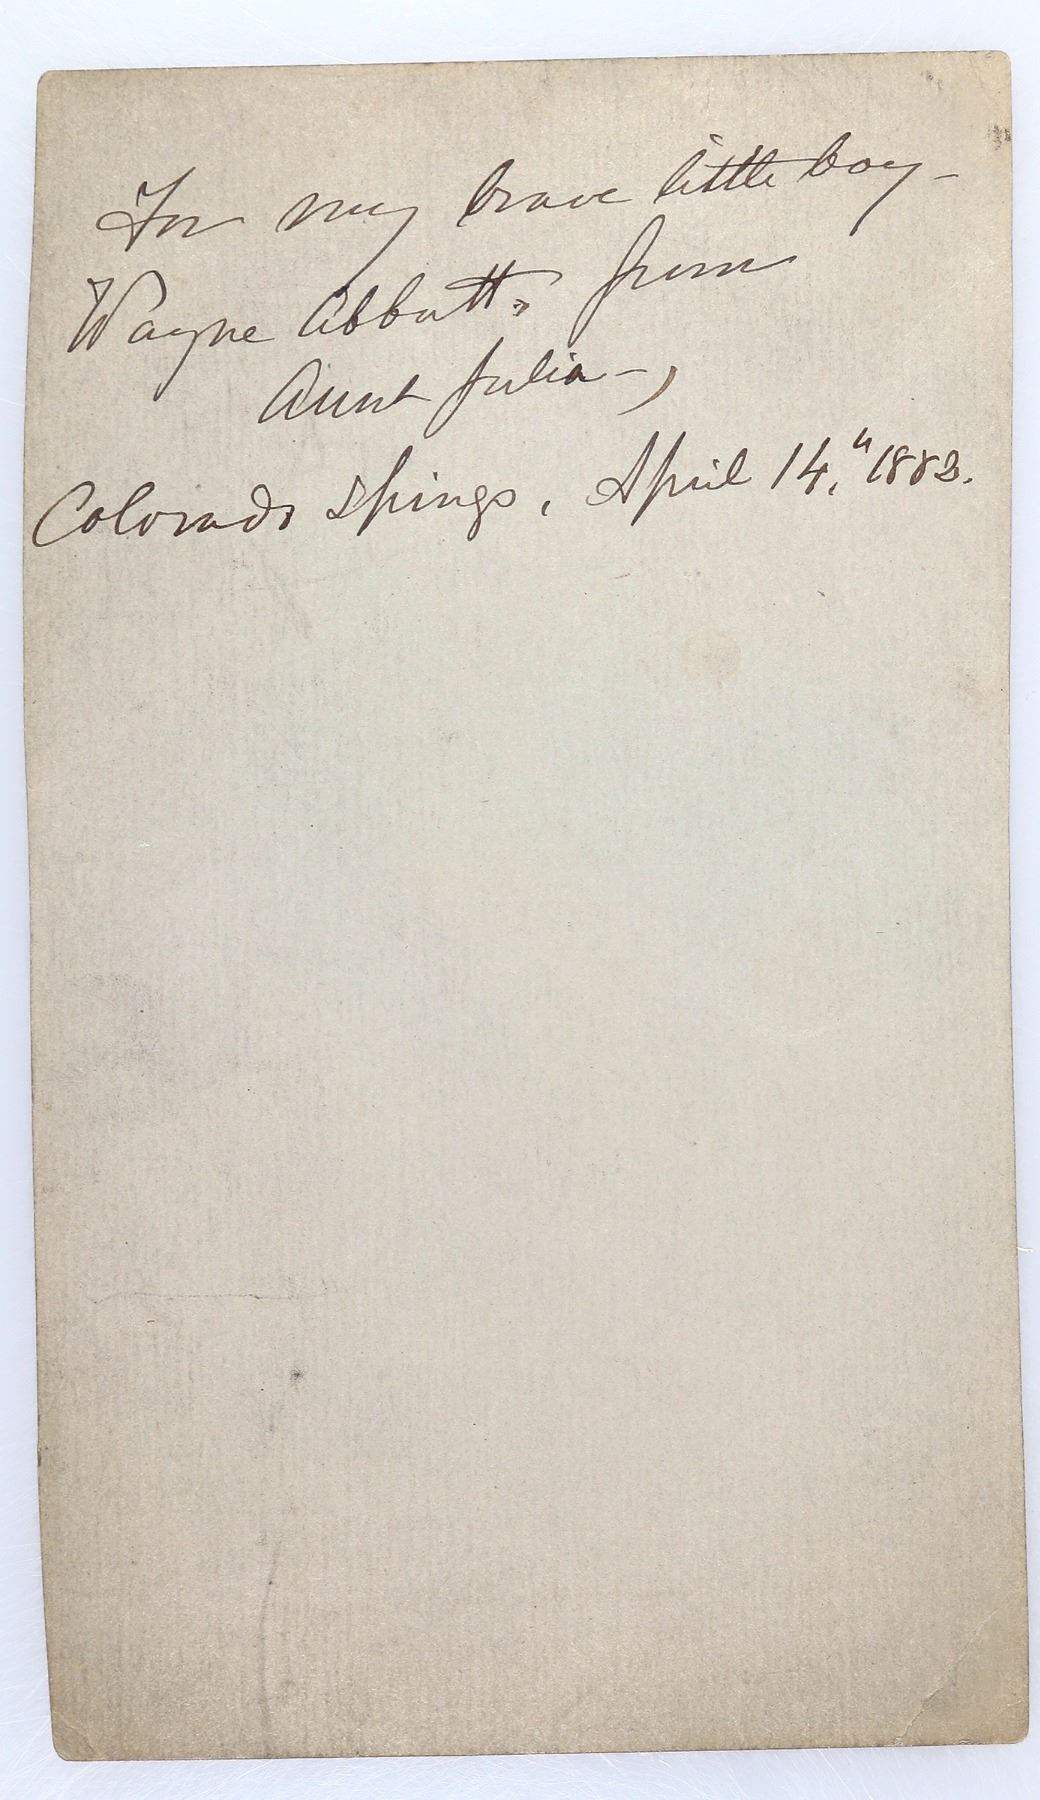 For my brave little boy-
Wayne Abbott, from
Aunt Julia-,
Colorado Springs, April 14,th 1882.